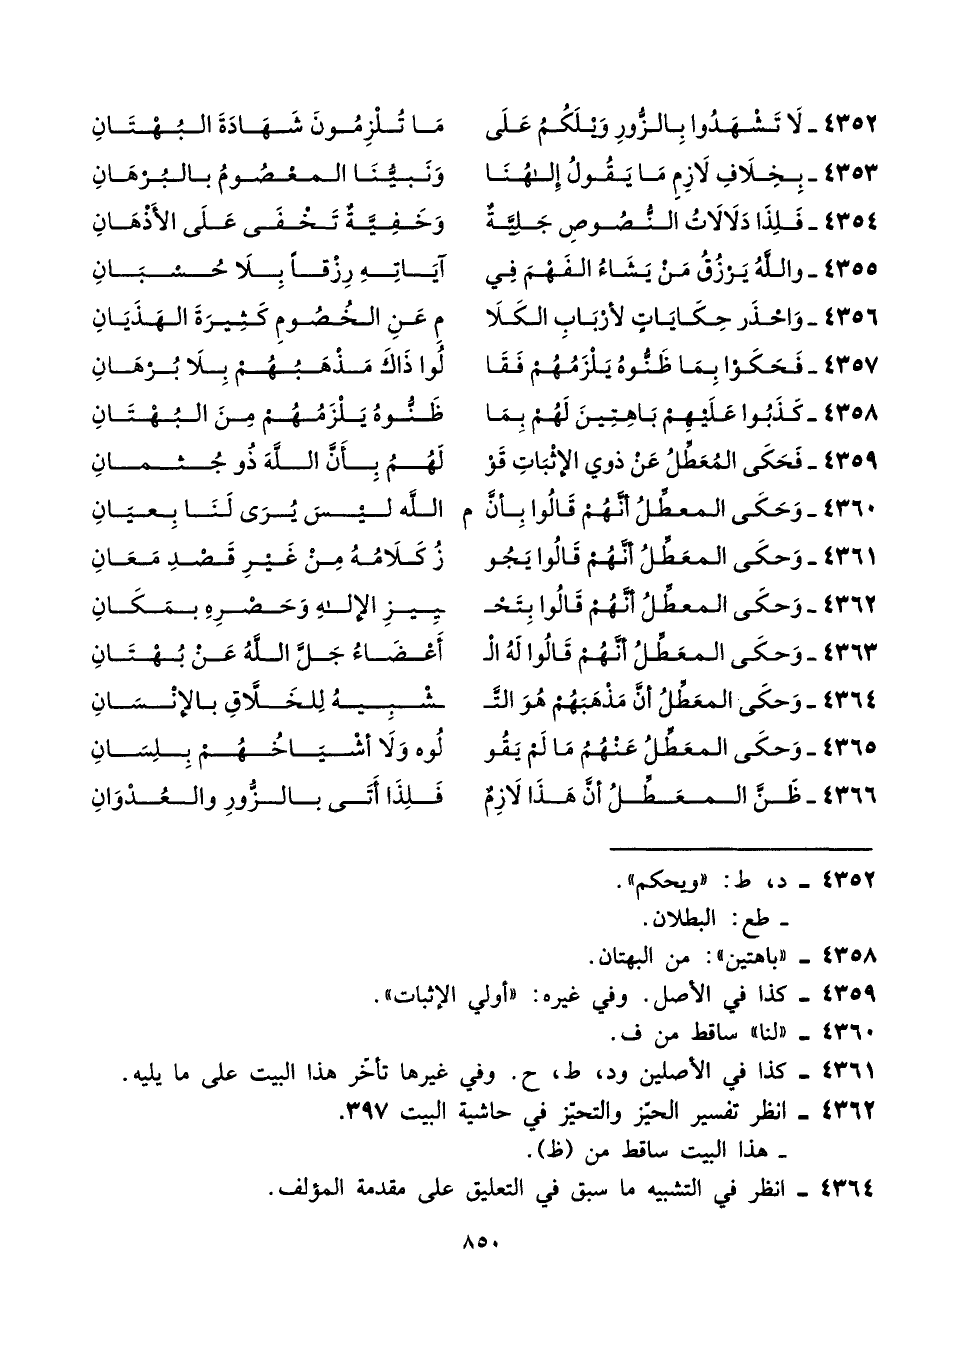 ٤٣٥٢ ـ لَا تَشْهَدُوا بِالزُّورِ وَيْلَكُمُ عَلَى مَا تُلْزِمُونَ شَهَادَةَ البُهْتَانِ
٤٣٥٣ ـ بِخِلَافِ لَازِمِ مَا يَقُولُ إِلٰهُنَا وَنَبِيُّنَا المعْصُومُ بالبُرْهَانِ
٤٣٥٤ ـ فَلِذَا دَلَالَاتُ النُّصُوصِ جَلِيَّةٌ وَخَفِيَّةٌ تَخْفَى عَلَى الأَذْهَانِ
٤٣٥٥ ـ واللَّهُ يَرْزُقُ مَنْ يَشَاءُ الفَهْمَ فِي آيَاتِهِ رِزْقاً بِلَا حُسْبَانِ
٤٣٥٦ ـ وَاحْذَر حِكَايَاتٍ لأرْبَابِ الكَلَا مِ عَنِ الخُصُومِ كَثِيرَةَ الهَذَيَانِ
٤٣٥٧ ـ فَحَكَوْا بِمَا ظَنُّوهُ يَلْزَمُهُمْ فَقَا لُوا ذَاكَ مَذْهَبُهُمْ بِلَا بُرْهَانِ
٤٣٥٨ ـ كَذَبُوا عَلَيْهِمْ بَاهِتِينَ لَهُمْ بِمَا ظَنُّوهُ يَلْزَمُهُمْ مِنَ البُهْتَانِ
٤٣٥٩ ـ فَحَكَى المُعَطِّلُ عَنْ ذوي الإثْبَاتِ قَوْ لَهُمُ بِأَنَّ اللَّهَ ذُو جُثْمَانِ
٤٣٦٠ ـ وَحَكَى المعطِّلُ أنَّهُمْ قَالُوا بِأنَّ م اللَّه لَيْسَ يُرَى لَنَا بِعيَانِ
٤٣٦١ ـ وَحكَى المعَطِّلُ أنَّهُمْ قَالُوا يَجُو زُ كَلَامُهُ مِنْ غَيْرِ قَصْدِ مَعَانِ
٤٣٦٢ ـ وَحكَى المعطِّلُ أنَّهُمْ قَالُوا بِتَحْـ ـيِيزِ الإلٰهِ وَحَصْرِهِ بمَكَانِ
٤٣٦٣ ـ وَحكَى المعطِّلُ أنَّهُمْ قَالُوا لَهُ الْـ أعْضَاءُ جَلَّ اللَّهُ عَنْ بُهْتَانِ
٤٣٦٤ ـ وَحكَى المعَطِّلُ أنَّ مَذْهَبَهُمْ هُوَ التَّـ ـشْبِيهُ لِلخَلَّاقِ بالإنْسَانِ
٤٣٦٥ ـ وَحكَى المعَطِّلُ عَنْهُمُ مَا لَمْ يَقُو لُوه وَلَا أشْيَاخُهُمْ بِلِسَانِ
٤٣٦٦ ـ ظَنَّ المعَطِّلُ أنَّ هَذَا لَازِمٌ فَلِذَا أَتَى بالزُّورِ والعُدْوَانِ
٤٣٥٢ ـ د، ط: «ويحكم».
ـ طع: البطلان.
٤٣٥٨ ـ «باهتين»: من البهتان.
٤٣٥٩ ـ كذا في الأصل. وفي غيره: «أولي الإثبات».
٤٣٦٠ ـ «لنا» ساقط من ف.
٤٣٦١ ـ كذا في الأصلين ود، ط، ح. وفي غيرها تأخّر هذا البيت على ما يليه.
٤٣٦٢ ـ انظر تفسير الحيّز والتحيّز في حاشية البيت ٣٩٧.
ـ هذا البيت ساقط من (ظ).
٤٣٦٤ ـ انظر في التشبيه ما سبق في التعليق على مقدمة المؤلف.
٨٥٠